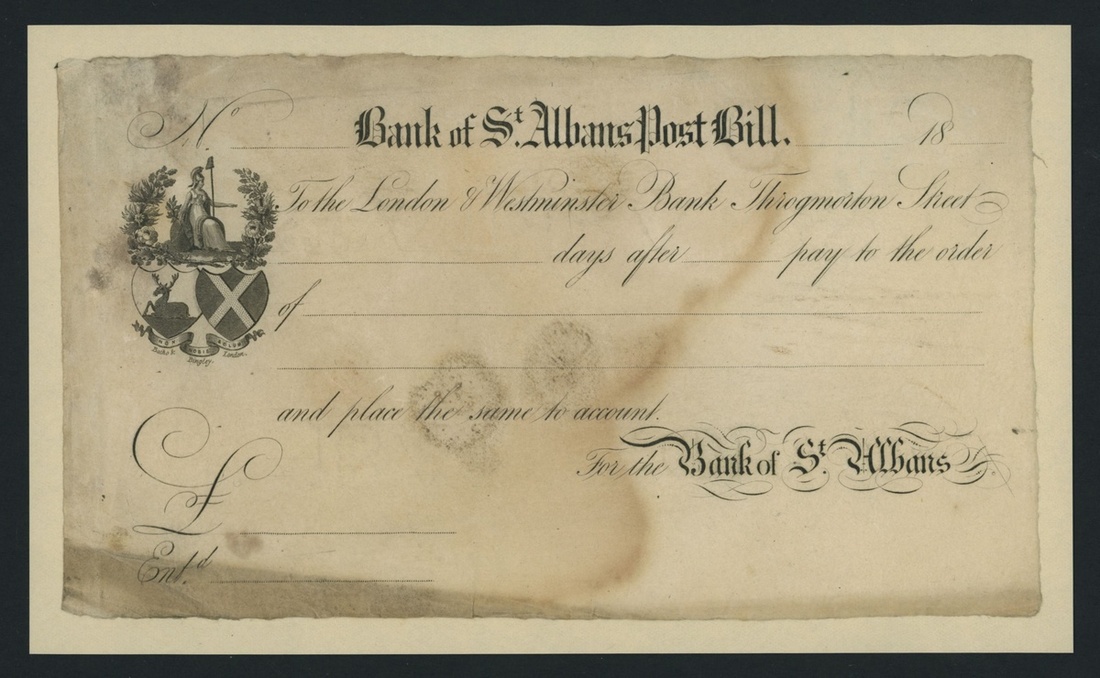 No Bank of St. Albans Post Bill. 18
To the London & Westminster Bank Throgmorton Street
days after pay to the order
of
and place the same to account.
For the Bank of St. Albans
£
Ent.d
NON NOBIS SOLUM
Bingley, London.